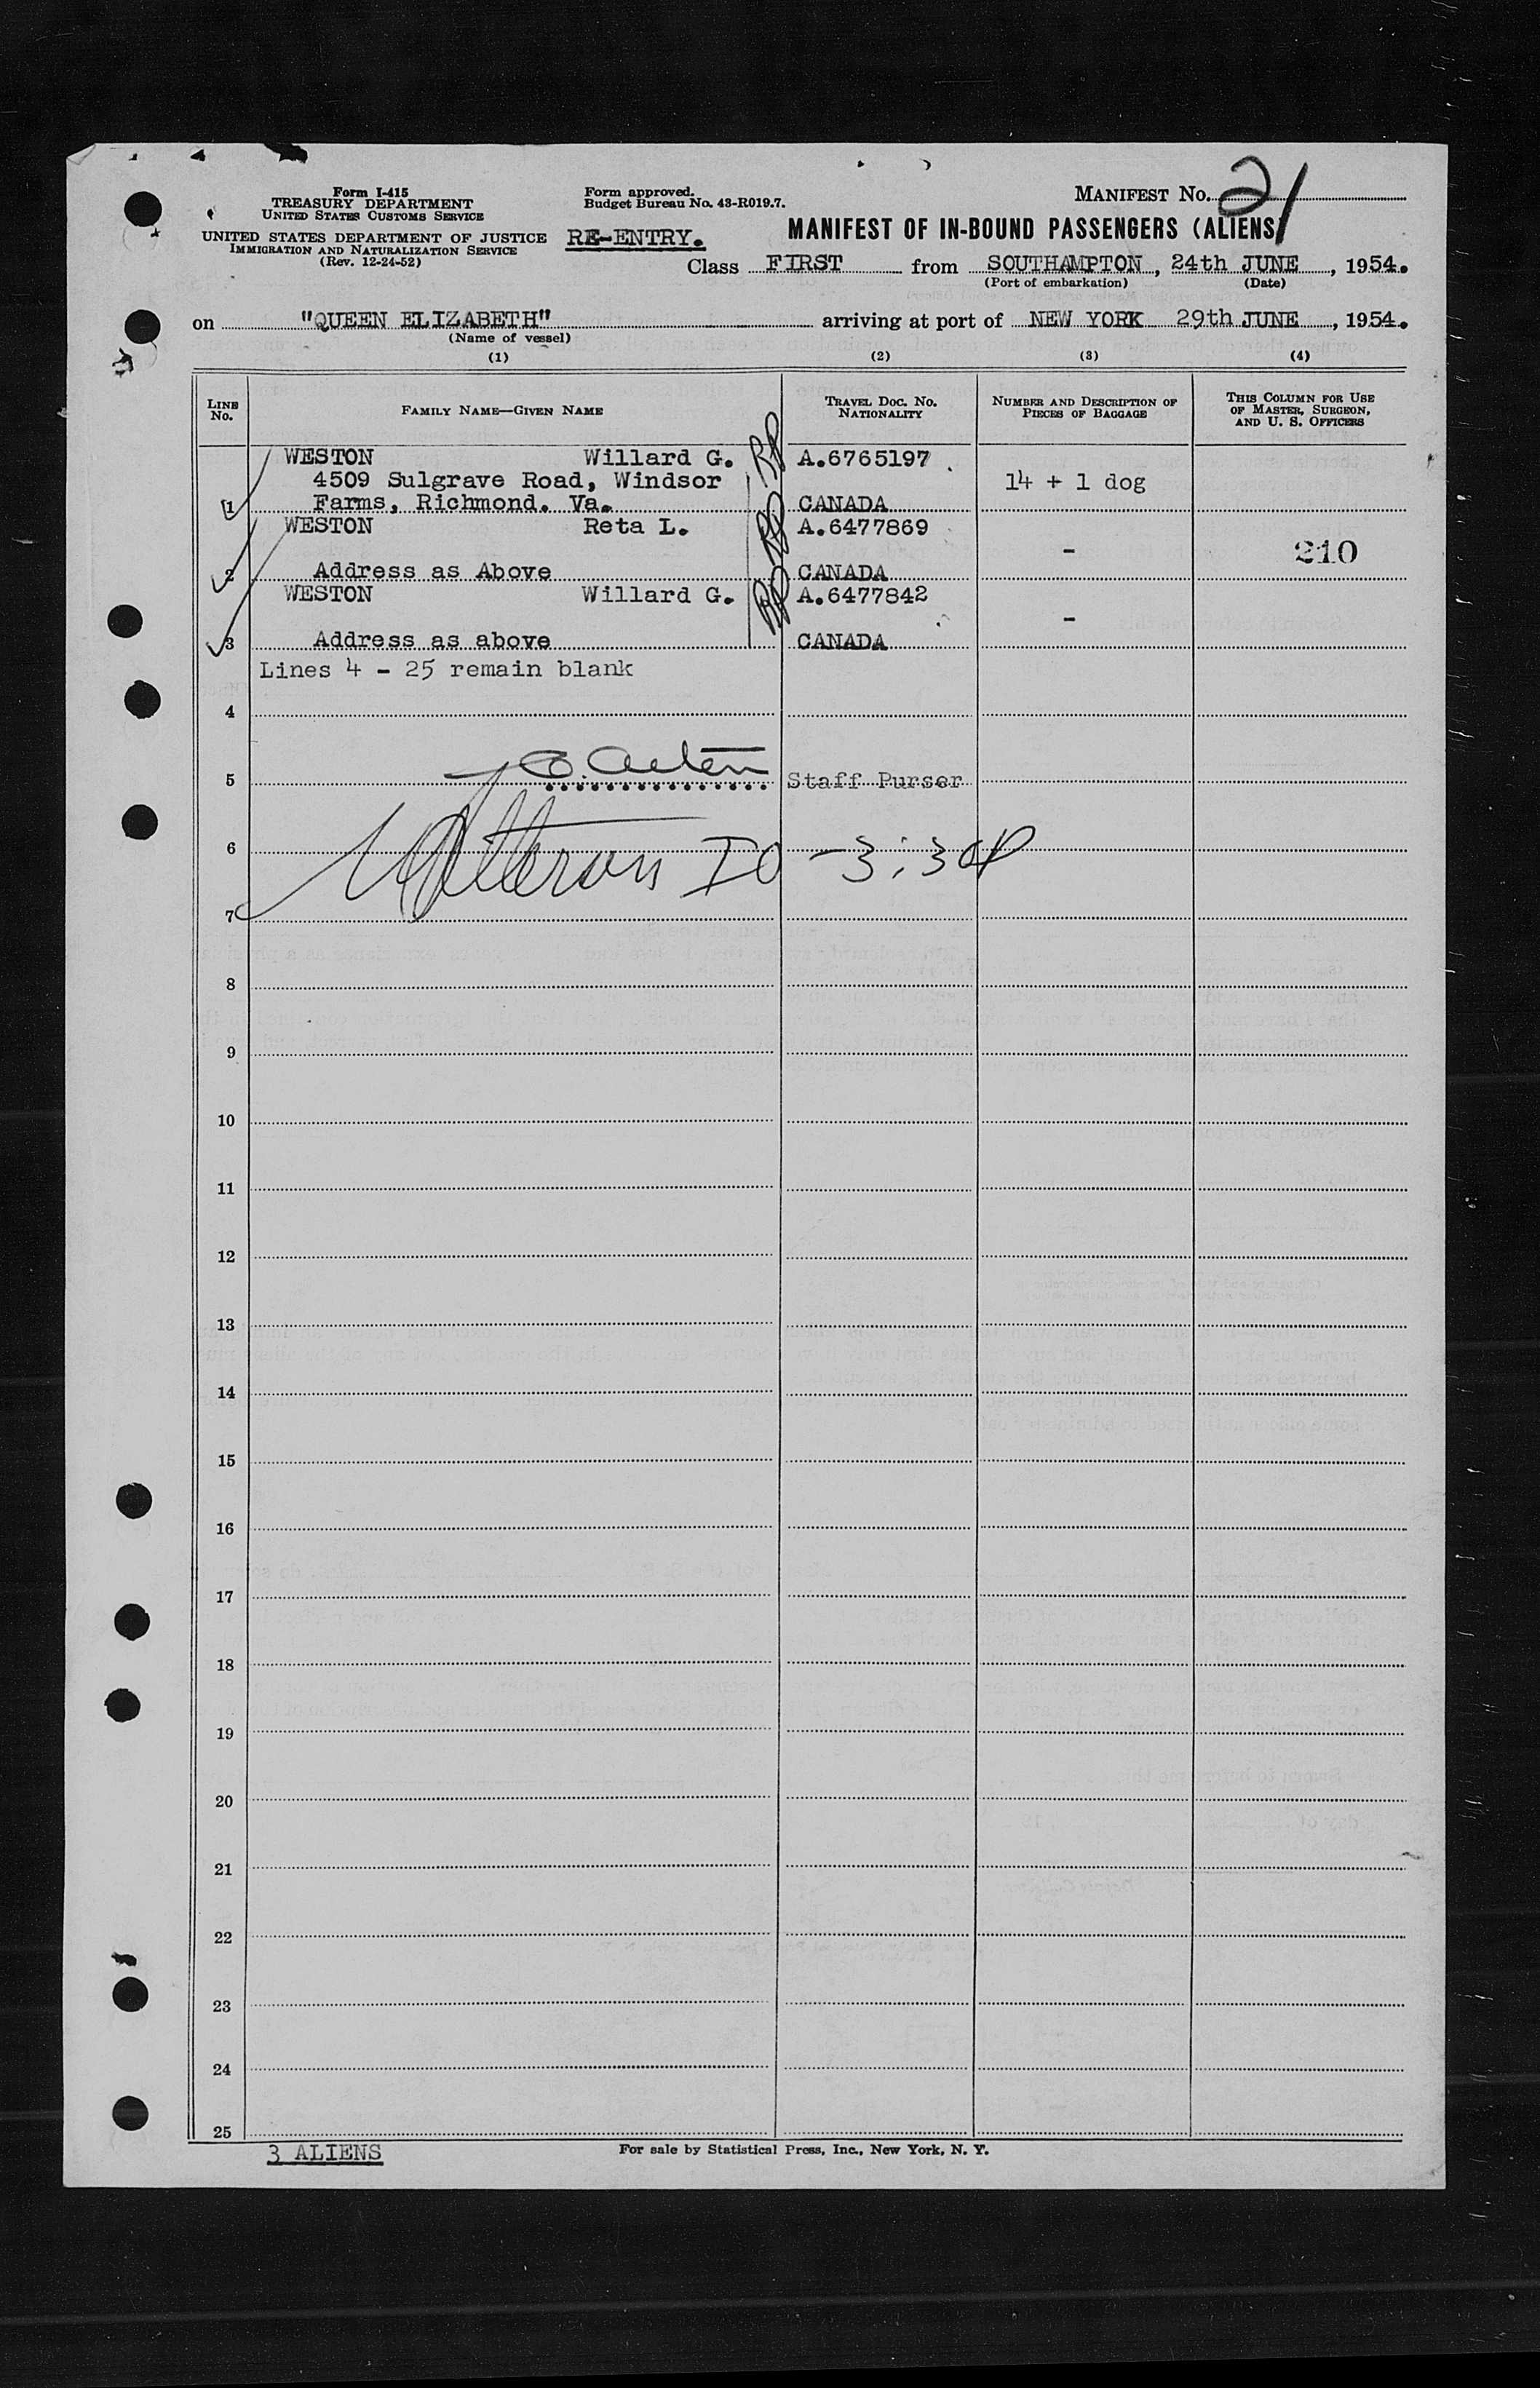 Form I-415
TREASURY DEPARTMENT
UNITED STATES CUSTOMS SERVICE
UNITED STATES DEPARTMENT OF JUSTICE
IMMIGRATION AND NATURALIZATION SERVICE
(Rev. 12-24-52)
Form approved.
Budget Bureau No. 43-R019.7.
RE-ENTRY.
MANIFEST No. 21
MANIFEST OF IN-BOUND PASSENGERS (ALIENS)
Class FIRST from SOUTHAMPTON, 24th JUNE, 1954.
(Port of embarkation) (Date)
on "QUEEN ELIZABETH" arriving at port of NEW YORK 29th JUNE, 1954.
(Name of vessel)
(1) (2) (3) (4)
LINE No. FAMILY NAME—GIVEN NAME TRAVEL DOC. NO. NATIONALITY NUMBER AND DESCRIPTION OF PIECES OF BAGGAGE THIS COLUMN FOR USE OF MASTER, SURGEON, AND U. S. OFFICERS
WESTON Willard G. A.6765197
4509 Sulgrave Road, Windsor 14 + 1 dog
1 Farms, Richmond. Va. CANADA
WESTON Reta L. A.6477869
- 210
2 Address as Above CANADA
WESTON Willard G. A.6477842
-
3 Address as above CANADA
Lines 4 - 25 remain blank
4
5 Staff Purser
6 IO - 3:30P
7
8
9
10
11
12
13
14
15
16
17
18
19
20
21
22
23
24
25
3 ALIENS
For sale by Statistical Press, Inc., New York, N. Y.